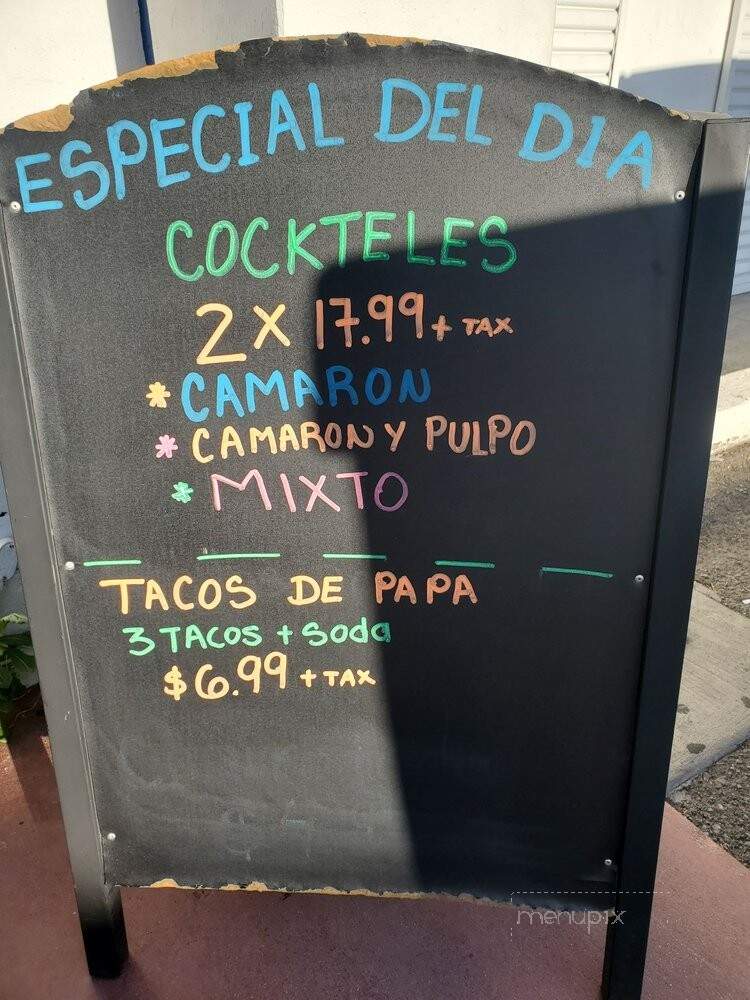 ESPECIAL DEL DIA
COCKTELES
2 X 17.99 + TAX
* CAMARON
* CAMARON Y PULPO
* MIXTO
TACOS DE PAPA
3 TACOS + Soda
$6.99 + TAX
menupix